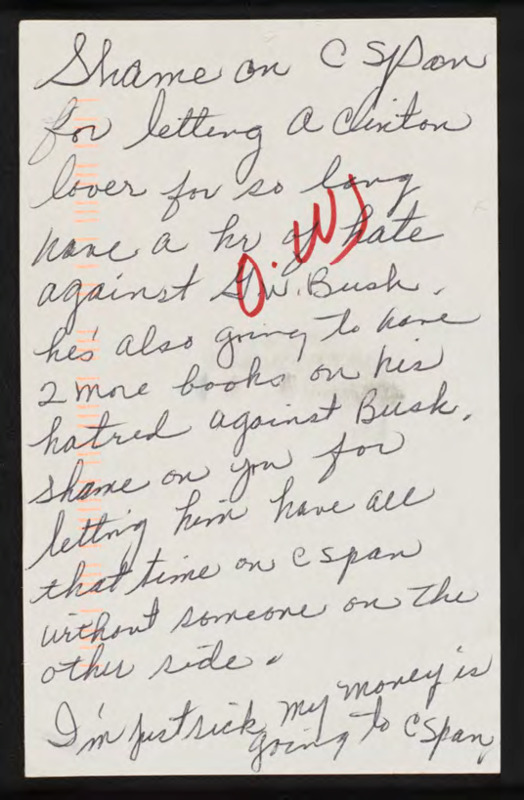 Shame on C Span
for letting a Clinton
lover for so long
have a hr of hate
against G.W. Bush.
he's also going to have
2 more books on his
hatred against Bush.
Shame on you for
letting him have all
that time on C Span
without someone on the
other side.
I'm just sick my money is
going to C Span